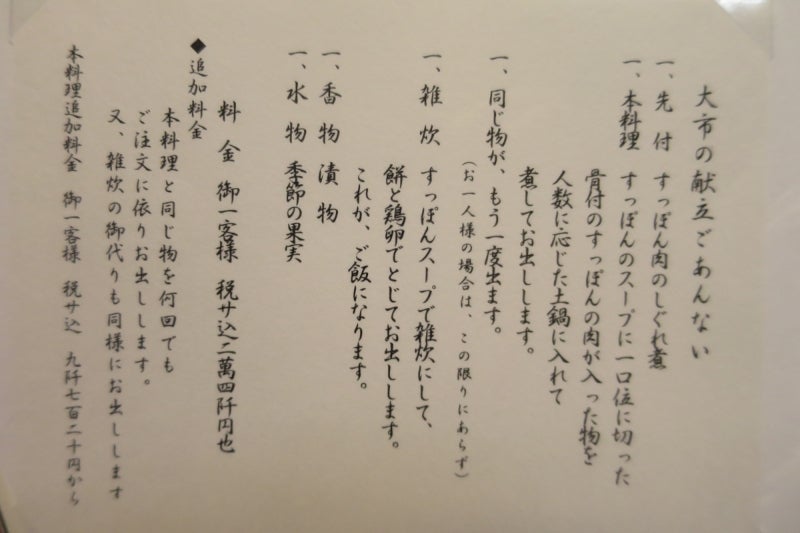 大市の献立ごあんない
一、先付 すっぽん肉のしぐれ煮
一、本料理 すっぽんのスープに一口位に切った
骨付のすっぽんの肉が入った物を
人数に応じた土鍋に入れて
煮してお出しします。
一、同じ物が、もう一度出ます。
(お一人様の場合は、この限りにあらず)
一、雑炊 すっぽんスープで雑炊にして、
餅と鶏卵でとじてお出しします。
これが、ご飯になります。
一、香物 漬物
一、水物 季節の果実
料金 御一客様 税サ込二萬四阡円也
◆追加料金
本料理と同じ物を何回でも
ご注文に依りお出しします。
又、雑炊の御代りも同様にお出しします
本料理追加料金 御一客様 税サ込 九阡七百二十円から